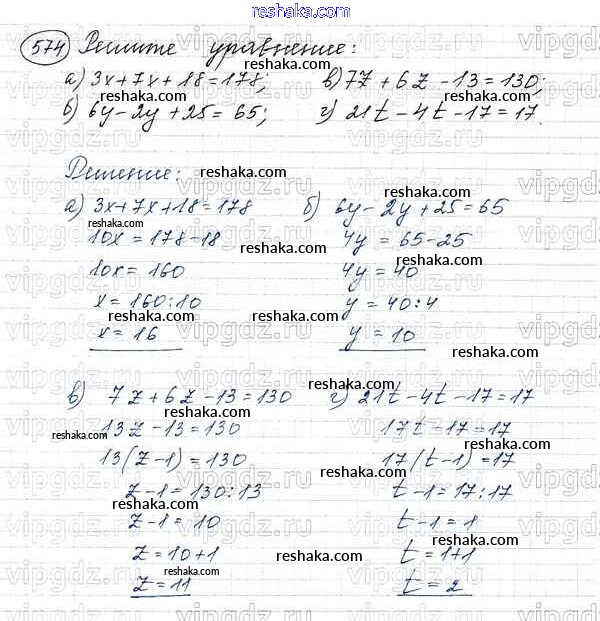 reshaka.com
574 Решите уравнение:
а) 3x+7x+18=178; в) 7z+6z-13=130;
б) 6y-2y+25=65; г) 21t-4t-17=17.
Решение:
а) 3x+7x+18=178 б) 6y-2y+25=65
10x=178-18 4y=65-25
10x=160 4y=40
x=160:10 y=40:4
x=16 y=10
в) 7z+6z-13=130 г) 21t-4t-17=17
13z-13=130 17t-17=17
13(z-1)=130 17(t-1)=17
z-1=130:13 t-1=17:17
z-1=10 t-1=1
z=10+1 t=1+1
z=11 t=2
reshaka.com
vipgdz.ru